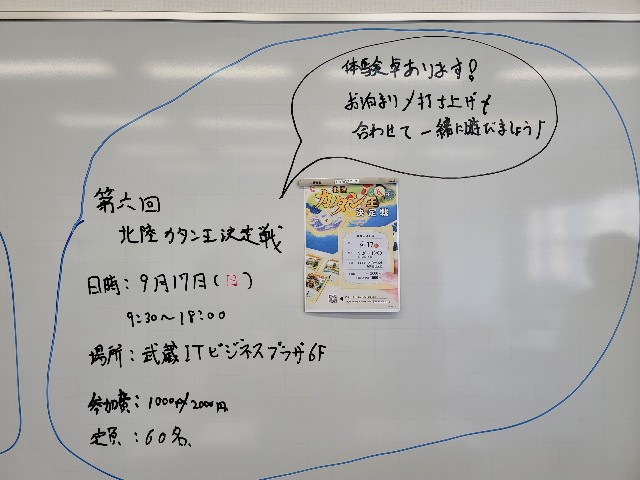 体験卓あります!
お泊まり/打ち上げも
合わせて一緒に遊びましょう!
第六回
北陸カタン王決定戦
日時:9月17日(日)
9:30~18:00
場所:武蔵ITビジネスプラザ6F
参加費:1000円/2000円
定員:60名、
北陸
カタン王
決定戦
9.17